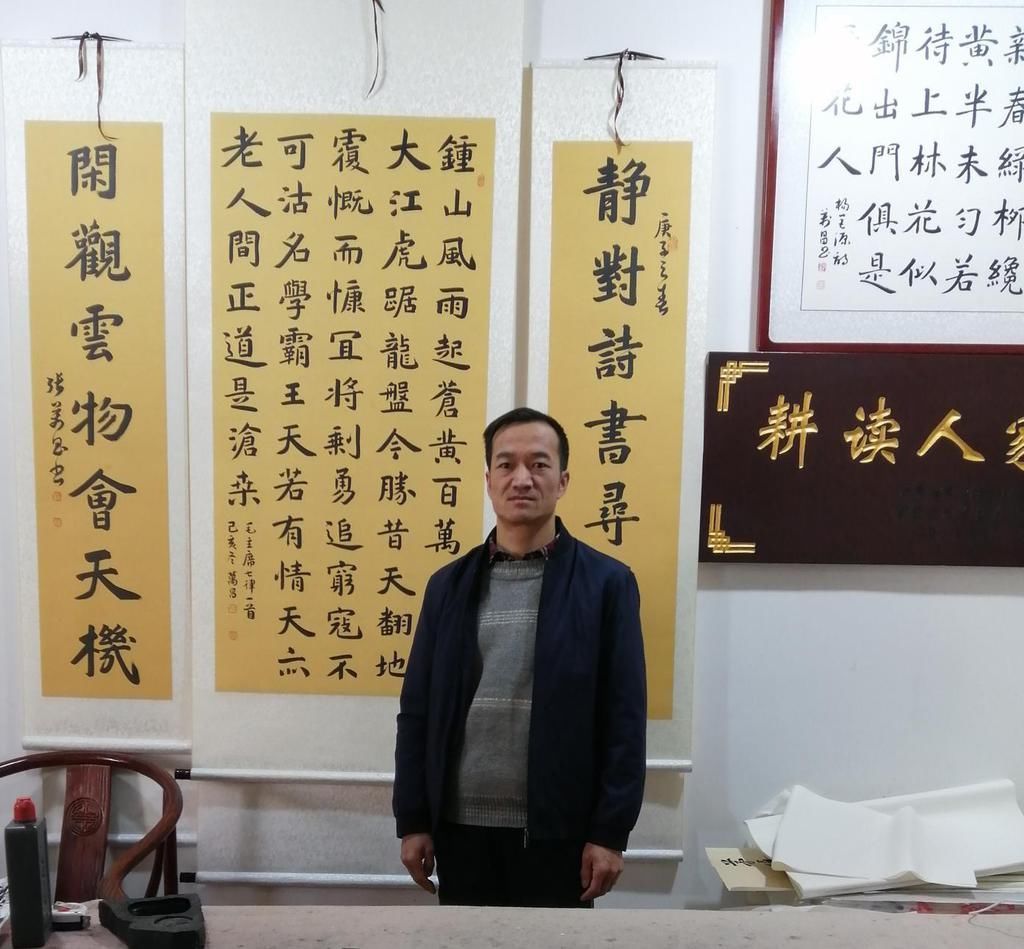 新春緑柳纔
黄半未匀若
待上林花似
錦出門俱是
花人
耕读人家
庚子之春
静對詩書尋
鍾山風雨起蒼黄百萬
大江虎踞龍盤今勝昔天翻地
覆慨而慷冝將剩勇追窮寇不
可沽名學霸王天若有情天亦
老人間正道是滄桒
毛主席七律一首
己亥冬萬昌
閑觀雲物會天機
張萬昌书